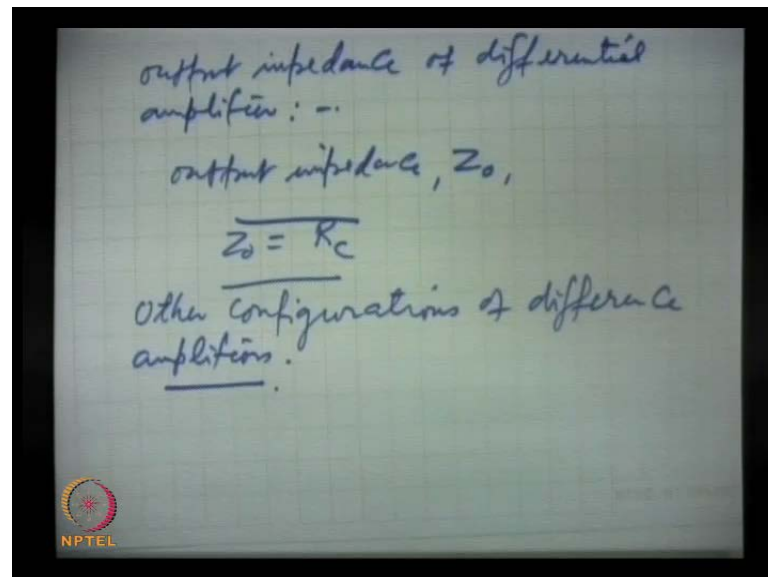 output impedance of differential
amplifier: -.
output impedance, Zo,
Zo = RC
Other configurations of difference
amplifiers.
NPTEL